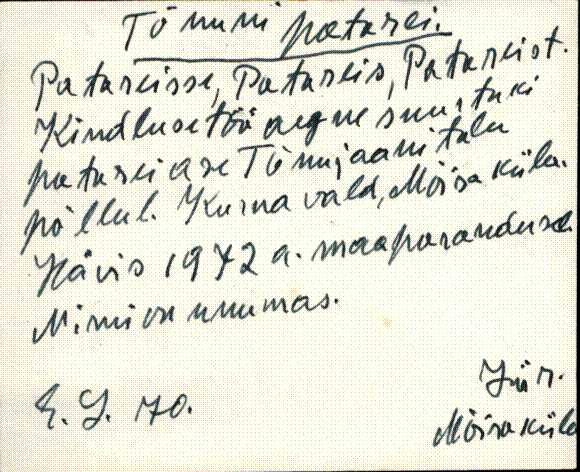 Tõnuni patarei.
Patareisse, Patareis, Patareist.
Kindlusetöö aegne suurtüki
patarei ase Tõnujaani talu
põllul. Kurna vald, Mõisaküla.
Hävis 1972 a. maaparanduse.
Nimi on unumas.
E. J. 70.
Jür.
Mõisaküla